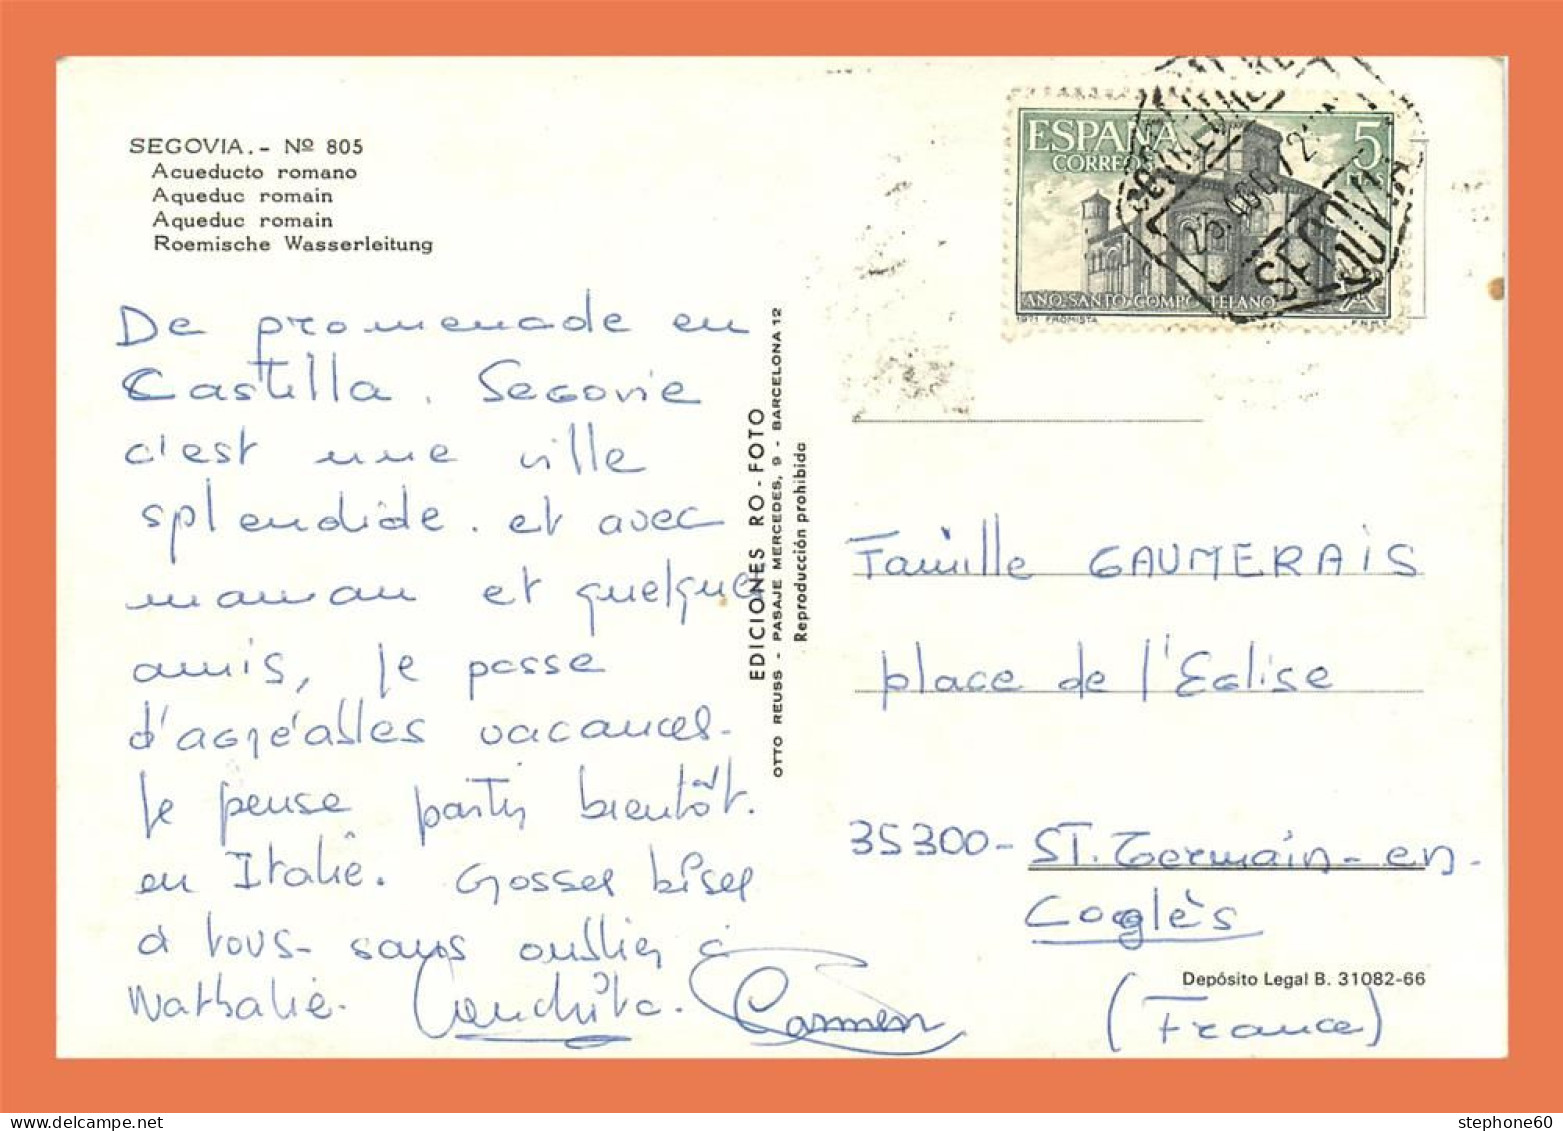 SEGOVIA. - Nº 805
Acueducto romano
Aqueduc romain
Aqueduc romain
Roemische Wasserleitung
De promenade en
Castilla. Segovie
c'est une ville
splendide. et avec
maman et quelque
amis, je passe
d'agréables vacances.
Je pense partir bientôt.
en Italie. Grosses bises
à tous - sans oublier à
Nathalie. Conchita. Carmen
EDICIONES RO - FOTO
OTTO REUSS - PASAJE MERCEDES, 9 - BARCELONA 12
Reproducción prohibida
ESPAÑA 5
CORREOS PTAS
AÑO SANTO COMPOSTELANO
1971 FROMISTA F.N.M.T.
SEGOVIA
Famille GAUMERAIS
place de l'Eglise
35300 - ST. Germain - en -
Coglès
Depósito Legal B. 31082-66
(France)
stephone60